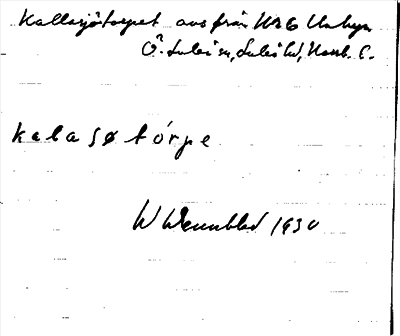 Kallasjötorpet avs från Nr 6 Unbyn
Ö. Luleå sn, Luleå lfs, Norrb. l.
kalasøtórpe
W Wennblad 1930